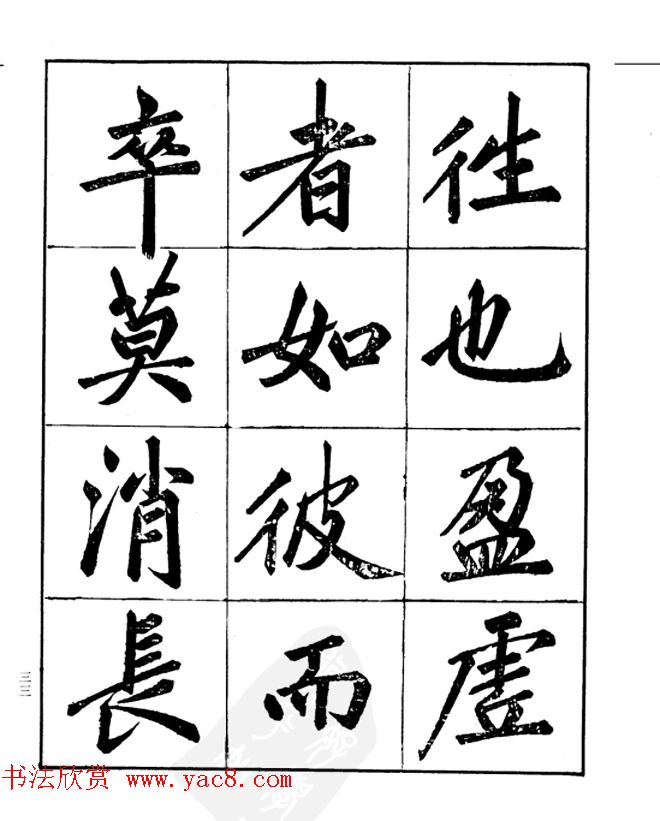 往也盈虛
者如彼而
卒莫消長
三三
书法欣赏 www.yac8.com